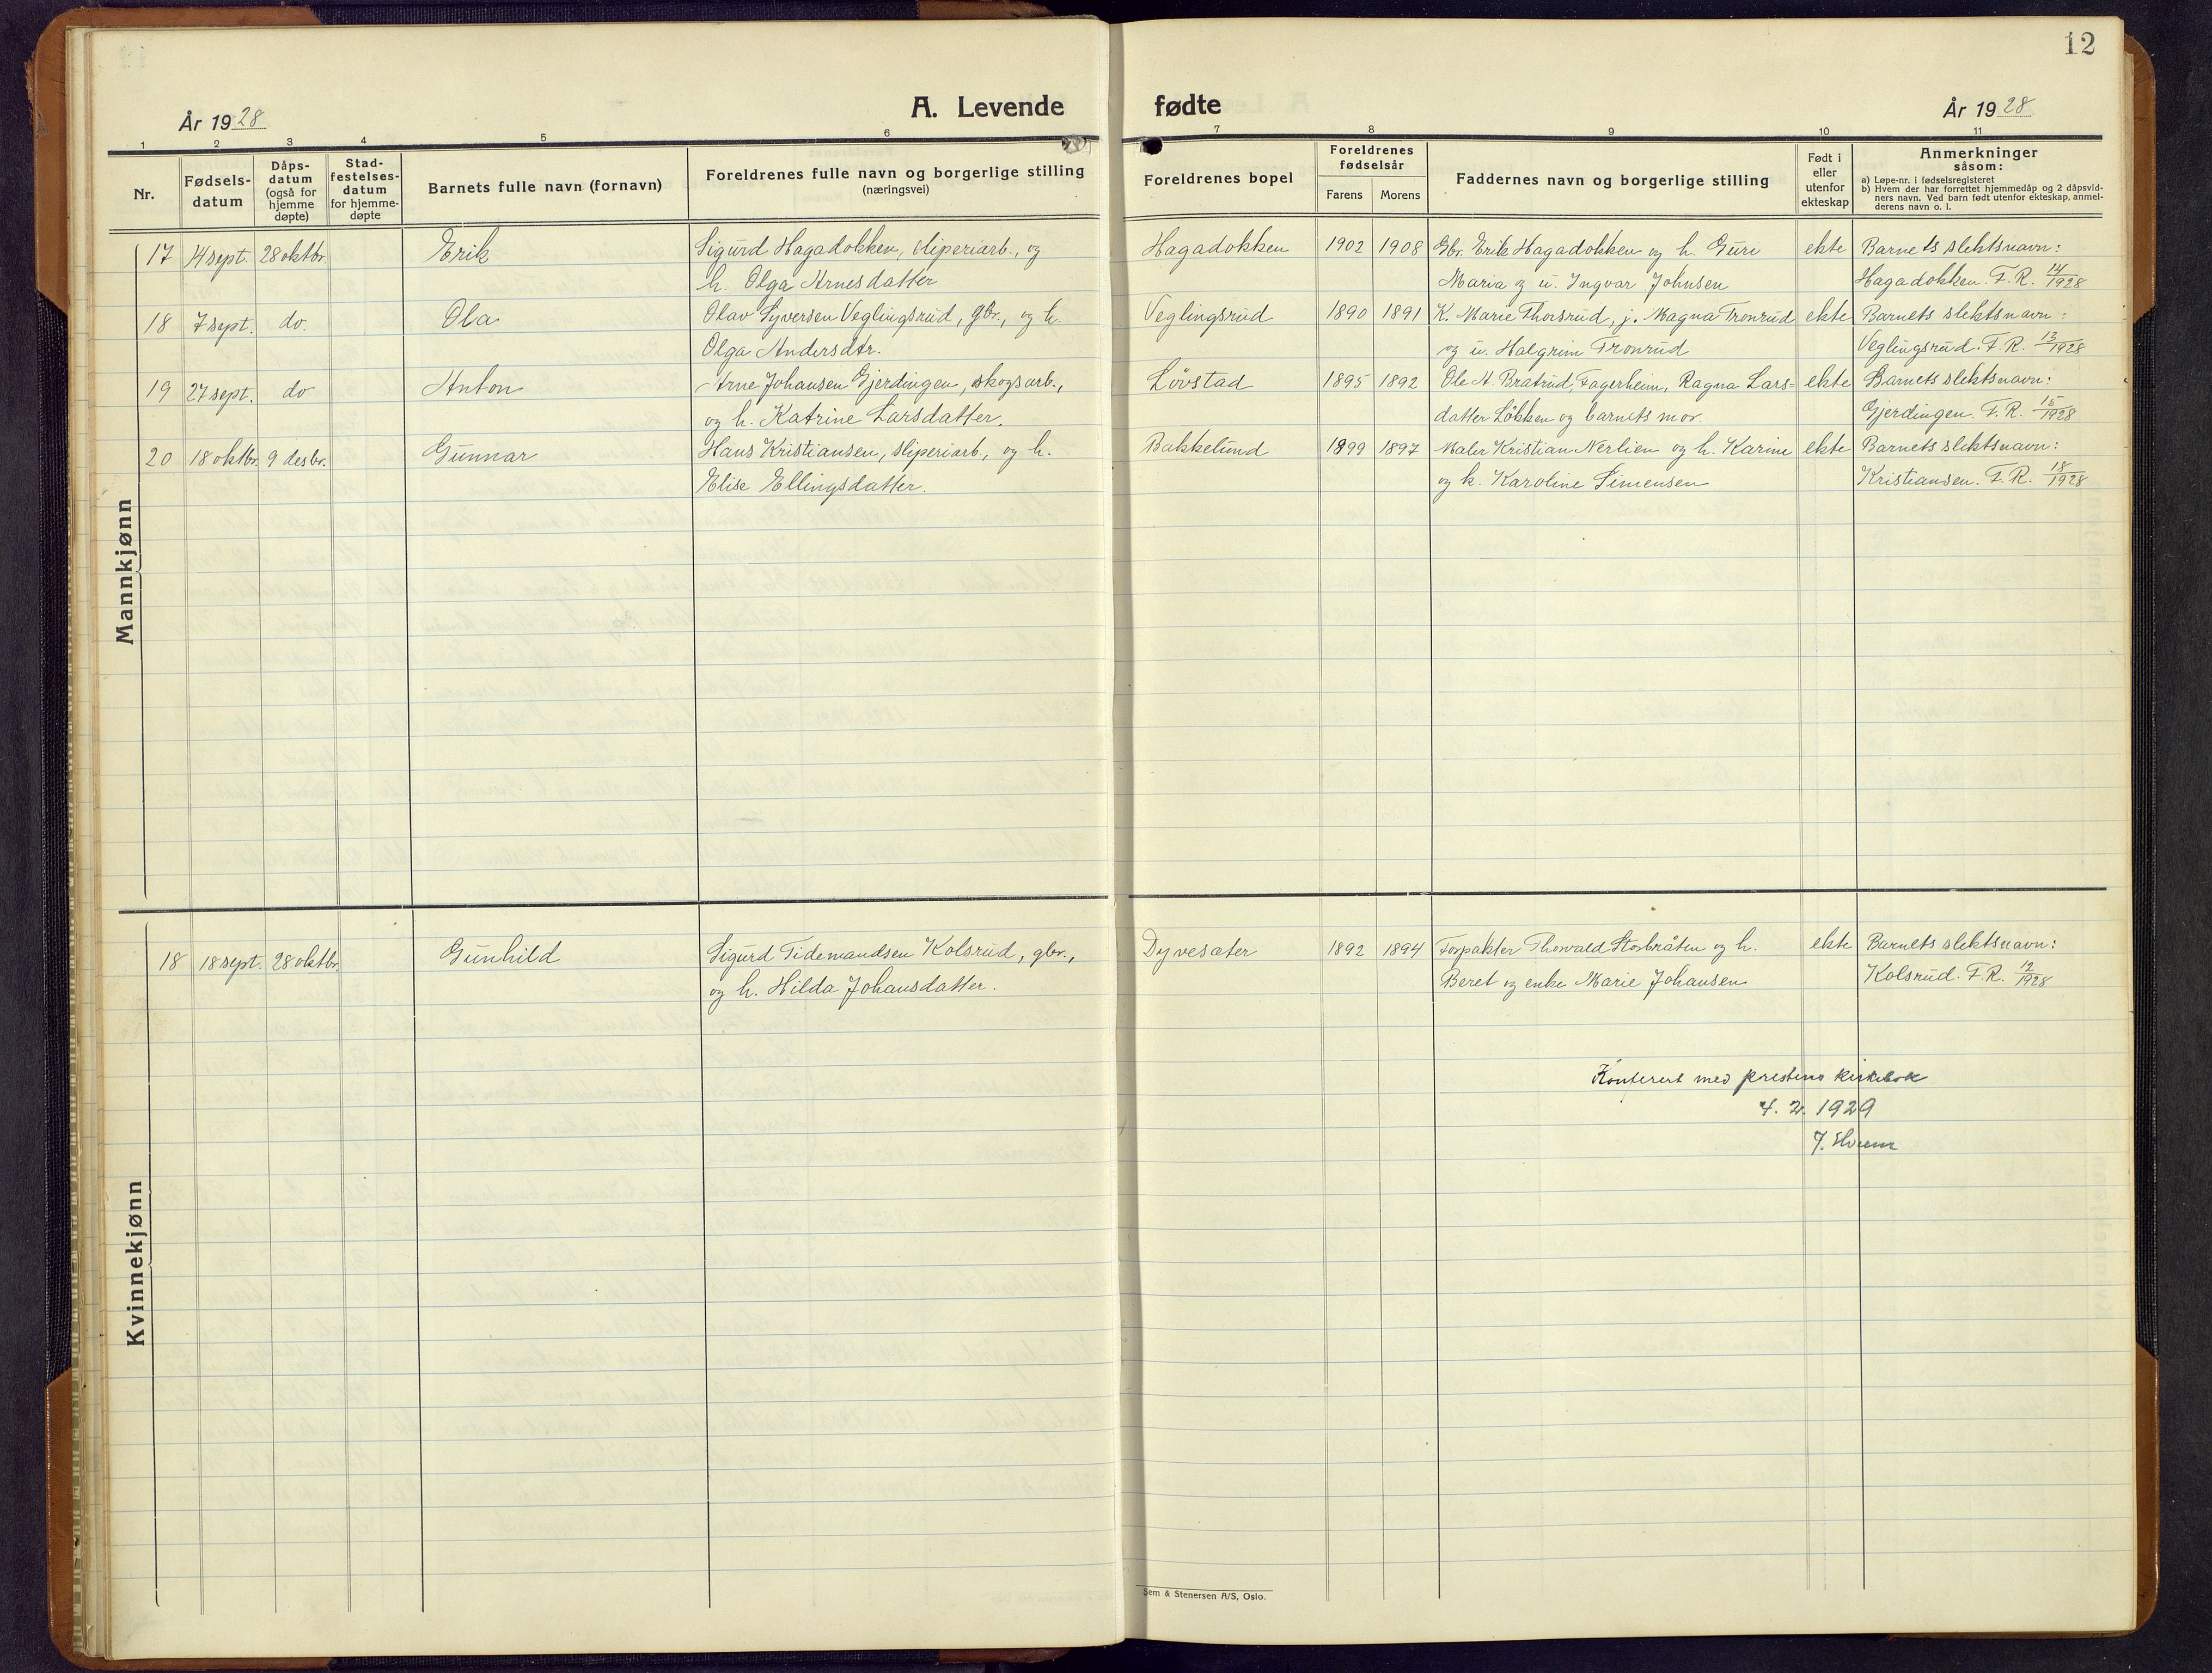 12
År 1928
A. Levende
fødte
År 1928
1 2 3 4 5 6 7 8 9 10 11
Nr.
Fødsels-
datum
Dåps-
datum
(også for
hjemme
døpte)
Stad-
festelses-
datum
for hjemme-
døpte
Barnets fulle navn (fornavn)
Foreldrenes fulle navn og borgerlige stilling
(næringsvei)
Foreldrenes bopel
Foreldrenes
fødselsår
Farens Morens
Faddernes navn og borgerlige stilling
Født i
eller
utenfor
ekteskap
Anmerkninger
såsom:
a) Løpe-nr. i fødselsregisteret
b) Hvem der har forrettet hjemmedåp og 2 dåpsvid-
ners navn. Ved barn født utenfor ekteskap, anmel-
derens navn o. l.
Mannkjønn
17 14 sept. 28 oktbr. Erik Sigurd Hagadokken, sliperiarb., og Hagadokken 1902 1908 Gbr. Erik Hagadokken og h. Guri ekte Barnets slektsnavn:
h. Olga Arnesdatter Maria og u. Ingvar Johnsen Hagadokken. F. R. 14/1928
18 7 sept. do. Ola Olav Syversen Veglingsrud, gbr., og h. Veglingsrud 1890 1891 K. Marie Thorsrud, j. Magna Tronrud ekte Barnets slektsnavn:
Olga Andersdtr. og u. Halgrim Tronrud Veglingsrud. F. R. 13/1928
19 27 sept. do Anton Arne Johansen Gjerdingen, skogsarb., Lövstad 1895 1892 Ole A. Bratrud, Fagerheim, Ragna Lars= ekte Barnets slektsnavn:
og h. Katrine Larsdatter. datter Lökken og barnets mor. Gjerdingen. F. R. 15/1928
20 18 oktbr. 9 desbr. Gunnar Hans Kristiansen, sliperiarb., og h. Bakkelund 1899 1897 Maler Kristian Nerlien og h. Karine ekte Barnets slektsnavn:
Elise Ellingsdatter. og k. Karoline Simensen Kristiansen. F. R. 18/1928
Kvinnekjønn
18 18 sept. 28 oktbr. Gunhild Sigurd Tidemandsen Kolsrud, gbr., Dyvesæter 1892 1894 Forpakter Thorvald Storbråten og h. ekte Barnets slektsnavn:
og h. Hilda Johansdatter. Beret og enke Marie Johansen Kolsrud. F. R. 12/1928
Konferert med prestens kirkebok
4. 2. 1929
Sem & Stenersen A/S, Oslo.